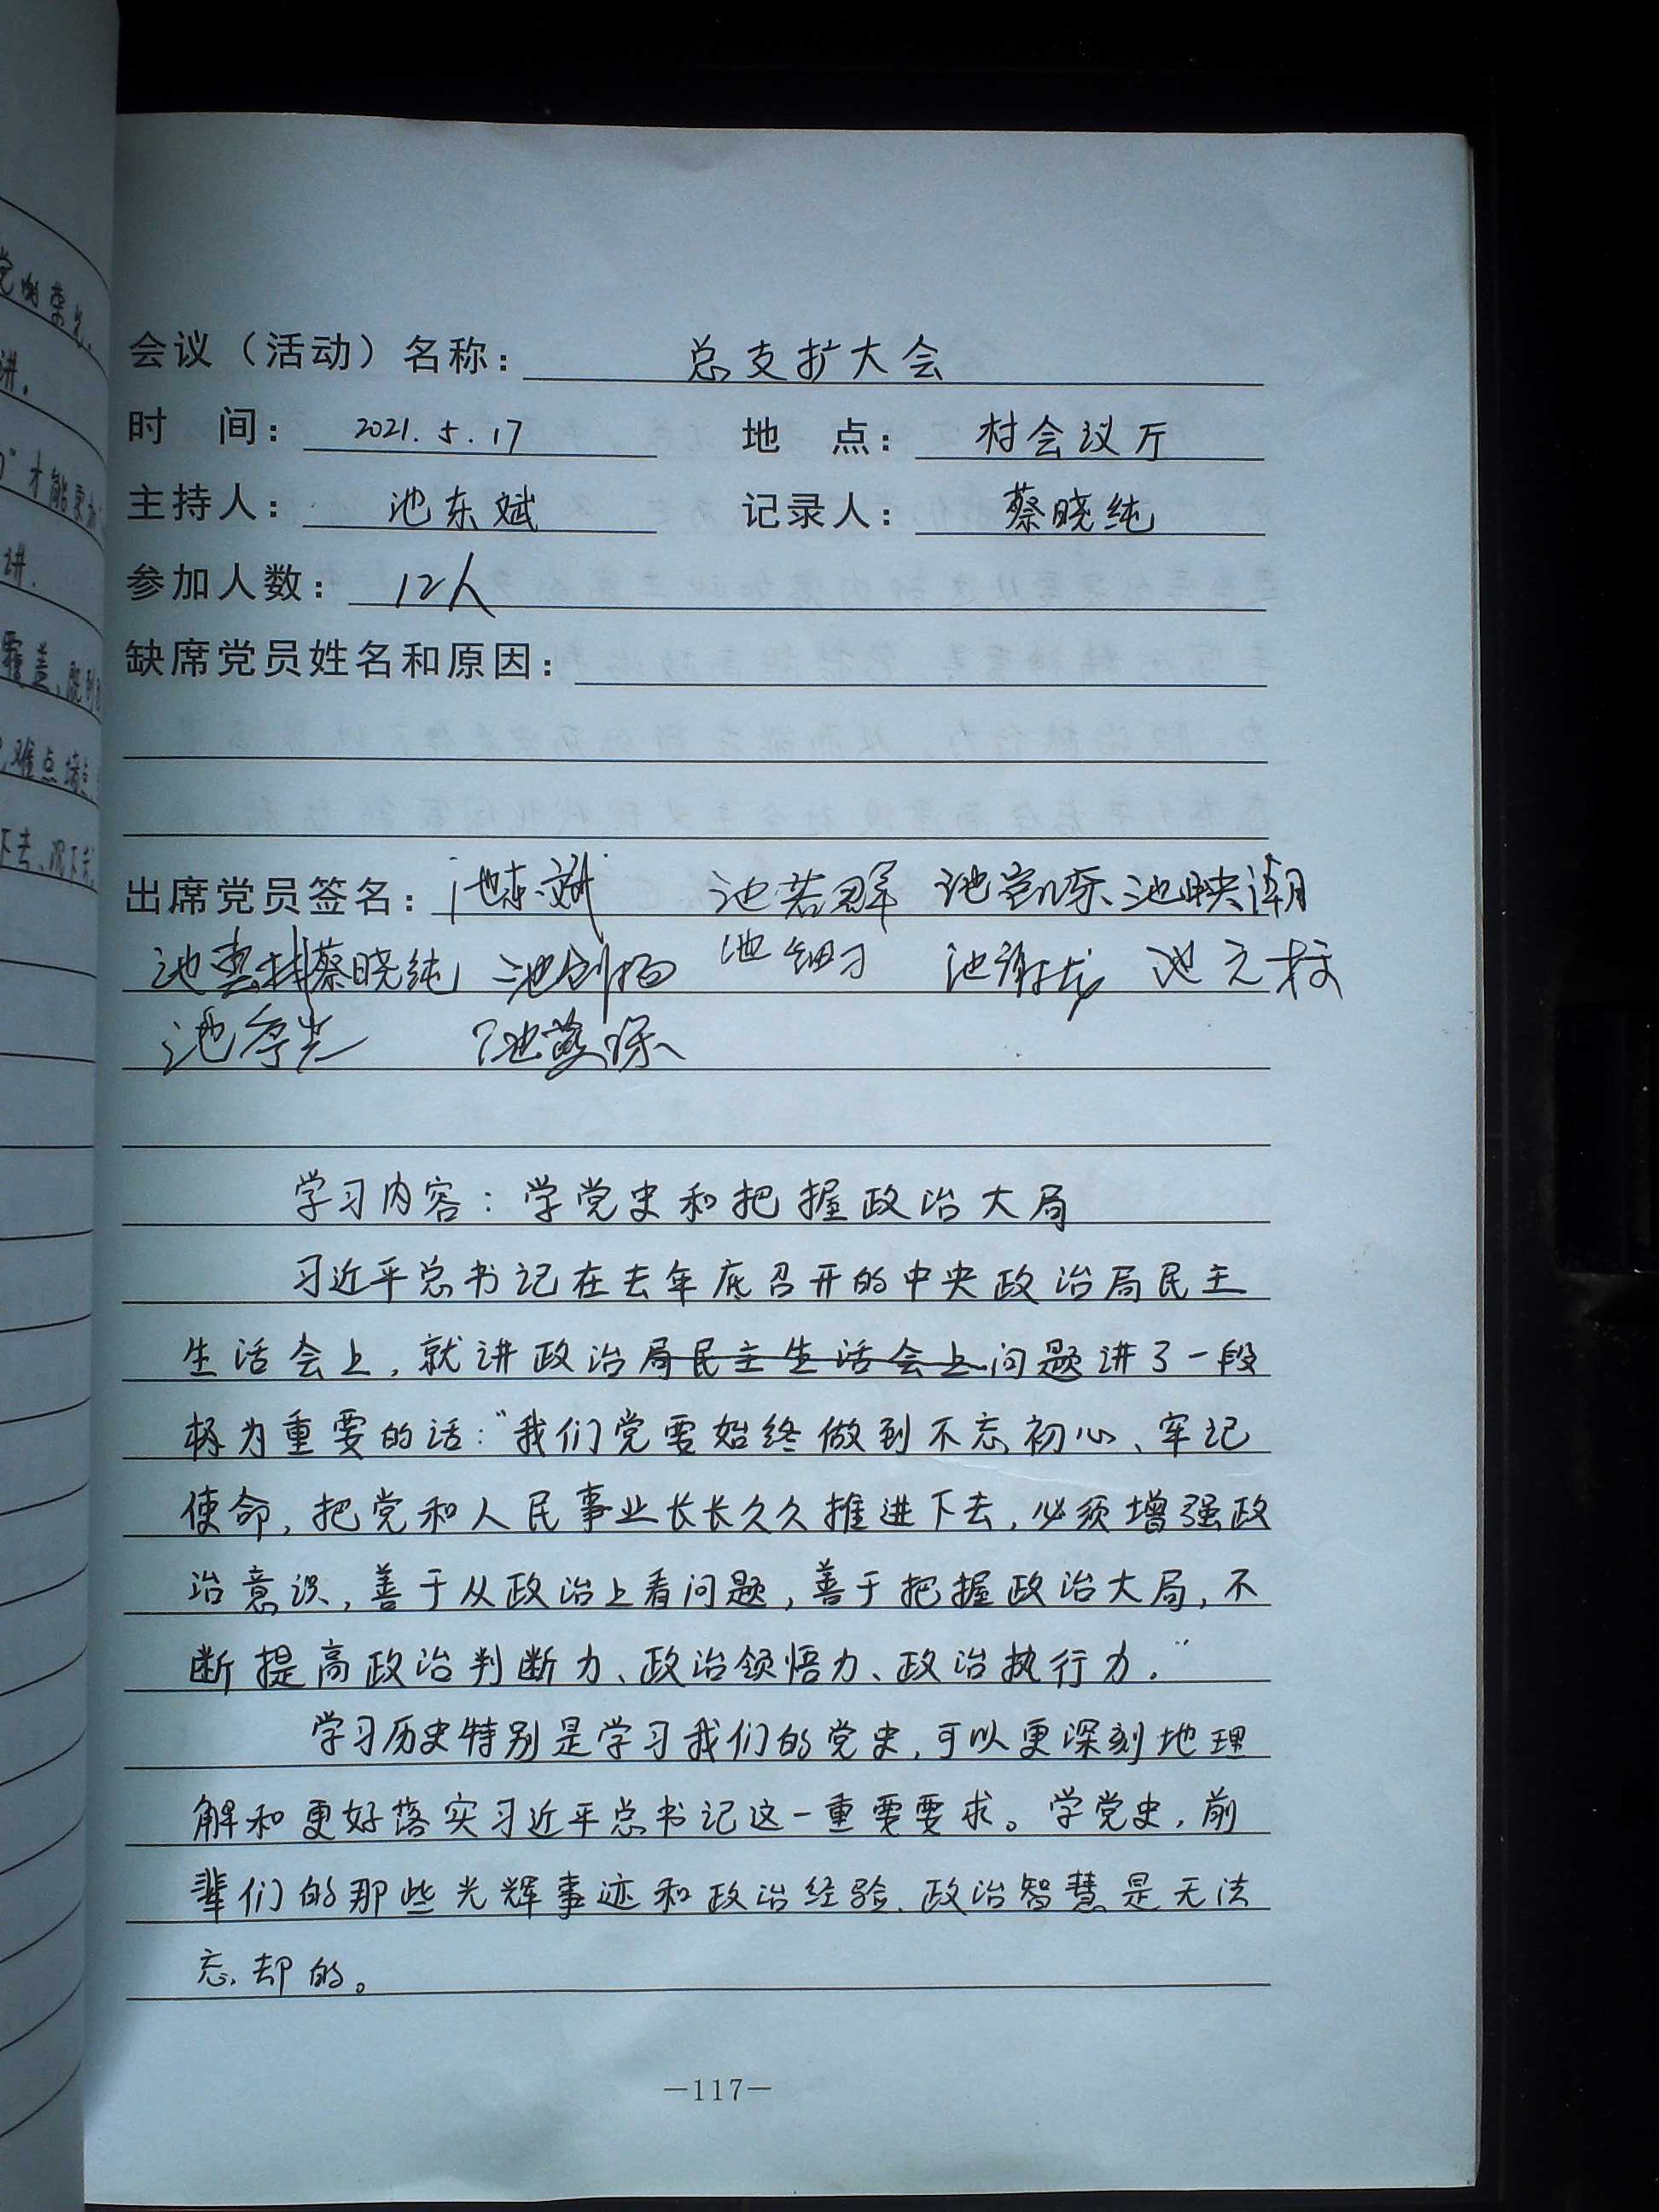 会议（活动）名称：总支扩大会
时 间：2021.5.17 地 点：村会议厅
主持人：池东斌 记录人：蔡晓纯
参加人数：12人
缺席党员姓名和原因：
出席党员签名：池东斌 池若群 池凯乐 池映潮
池云林 蔡晓纯 池创 池细 池 池元
池 池
学习内容：学党史和把握政治大局
习近平总书记在去年底召开的中央政治局民主
生活会上，就讲政治局民主生活会上问题讲了一段
极为重要的话：“我们党要始终做到不忘初心、牢记
使命，把党和人民事业长长久久推进下去，必须增强政
治意识，善于从政治上看问题，善于把握政治大局，不
断提高政治判断力、政治领悟力、政治执行力。”
学习历史特别是学习我们的党史，可以更深刻地理
解和更好落实习近平总书记这一重要要求。学党史，前
辈们的那些光辉事迹和政治经验、政治智慧是无法
忘却的。
—117—